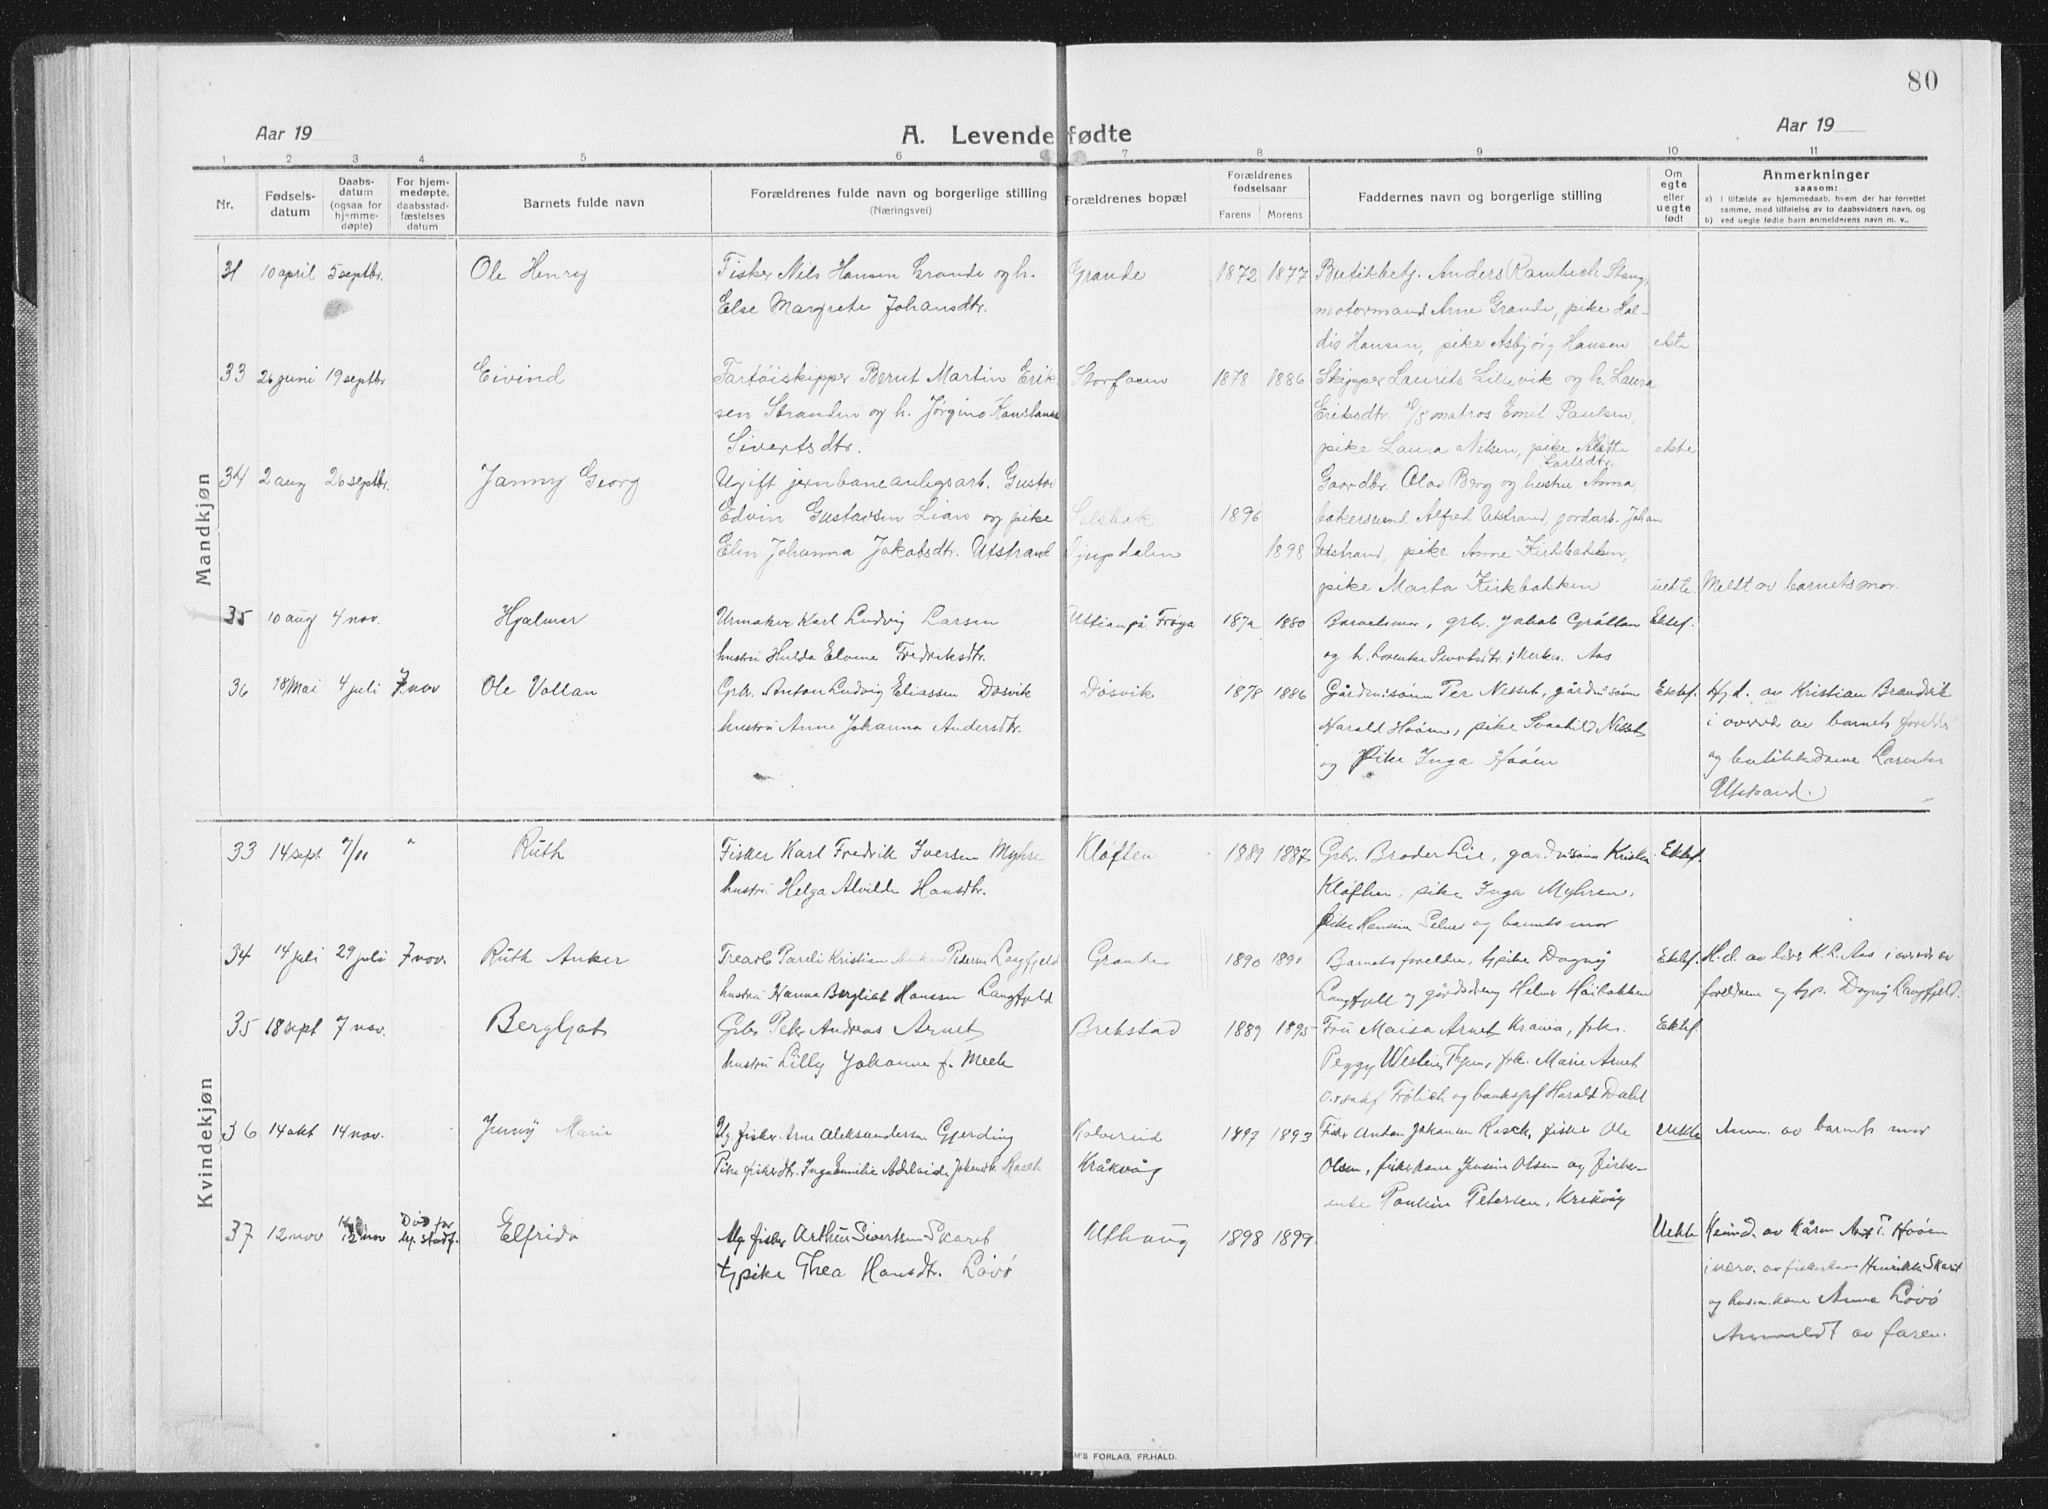 80
Aar 19
A. Levendefødte
Aar 19
1 2 3 4 5 6 7 8 9 10 11
Nr.
Fødsels-
datum
Daabs-
datum
(ogsaa for
hjemme-
døpte)
For hjem-
medøpte,
daabsstad-
fæstelses
datum
Barnets fulde navn
Forældrenes fulde navn og borgerlige stilling
(Næringsvei)
Forældrenes bopæl
Forældrenes
fødselsaar
Farens Morens
Faddernes navn og borgerlige stilling
Om
egte
eller
uegte
født
Anmerkninger
saasom:
a) I tilfælde av hjemmedaab, hvem der har forrettet
samme, med tilføielse av to daabsvidners navn, og
b) ved uegte fødte barn anmelderens navn m. v.
Mandkjøn
31 10 april 5 septbr. Ole Henry Fisker Nils Hansen Grande og h. Grande 1872 1877 Butikbetj. Anders Rambech Stang,
Else Margrete Johansdtr. motormand Arne Grande, pike Hal-
dis Hansen, pike Asbjørg Hansen ekte
33 26 juni 19 septbr Eivind Fartøiskipper Bernt Martin Erik Storfosen 1878 1886 Skipper Laurits Lillevik og h. Laura
sen Stranden og h. Jørgine Konstanse Eriksdtr. matros Emil Paulsen,
Sivertsdtr. pike Laura Nilsen, pike Alette ekte
Karlsdtr.
34 2 aug 26 septbr. Janny Georg Ugift jernbaneanligsarb. Gustav Gaardbr. Olav Berg og hustru Anna,
Edvin Gustavsen Lian og pike Selsbak 1896 bakersvend Alfred Utstrand, jordarb. Johan
Elin Johanna Jakobsdtr. Utstrand Djupdalen 1898 Utstrand, pike Anne Kirkbakken,
pike Marta Kirkbakken uekte Meldt av barnets mor.
35 10 aug 4 nov. Hjalmar Urmaker Karl Ludvig Larsen Uttian på Frøya 1872 1880 Barnets mor, grbr. Jakob Gråttan Ektef.
hustru Hulda Elvine Fredriksdtr. og h. Lorentse Aas
36 18 Mai 4 juli 7 nov Ole Vollan Grbr. Anton Ludvig Eliassen Døsvik Døsvik 1878 1886 Gårdmsønn Per Nesset, gårdmsønn Ektef. Hj.d. av Kristian Brandvik
hustru Anne Johanna Andersdtr. Harald Hoøen, pike Svanhild Nesset i overv av barnets foreldre
og Pike Inga Hoøen og butikkdame Larentse
Utstrand.
Kvindekjøn
33 14 sept 7/11 " Ruth Fisker Karl Fredrik Iversen Myhre Kløften 1889 1887 Grbr. Broder Lie, gårdmsønn Kristen Ektef.
hustru Helga Alvilde Hansdtr. Kløften, pike Inga Myhren,
pike Hansine Selnes og barnets mor
34 14 juli 29 juli 7 nov. Ruth Anker Pareli Kristian Anker Pedersen Langfjeld Grande 1890 1891 Barnets foreldre, tjpike Dagny Ektef. H.d. av lærer K.L. Aas i overv av
hustru Hanna Bergliot Hansen Langfjeld Langfjell og gårdsdreng Helmer Høibakken foreldrene og tjp. Dagny Langfjeld.
35 18 sept 7 nov. Bergljot Grbr Peter Andreas Arnet Brekstad 1889 1895 Fru Maisa Arnet Krania, frk. Ektef
hustru Lilly Johanne f. Meek Peggy frk. Marie Arnet
Frølich og banksjef Harald Dahl
36 14 okt 14 nov. Jenny Marie Ug. fisker Arne Aleksandersen Gjerding Kolvereid 1897 1893 Fisker Anton Johansen Rasch, fisker Ole uekte Anm. av barnets mor
Pike fiskerdtr. Inga Emilie Adelaide Johansdtr. Rasch Kråkvåg Olsen, fiskerkone Jensine Olsen og fisker-
enke Pauline Petersen, Kråkvåg
37 12 nov 12 nov Død før Elfrida Ug. fisker Arthur Sivertsen Skaret Uthaug 1898 1899 Uekte av Karen Hoøen
stadf. tjpike Thea Hansdtr. Løvø av fiskerkone Henrikke Skaret
og Anna Løvø
Anmeldt av faren.
SEM'S FORLAG, FR.HALD.